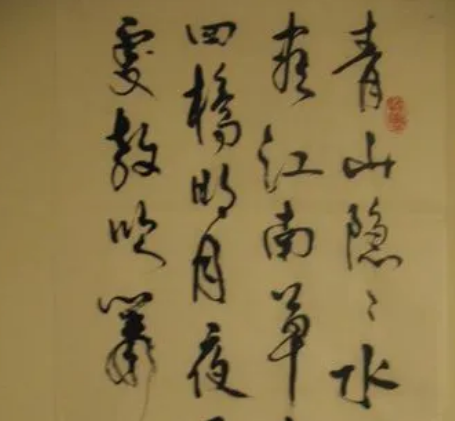 青山隐〻水
盡江南草
四橋明月夜
處教吹簫